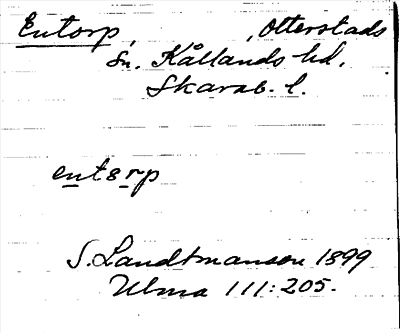 Entorp, , Otterstads
sn. Kållands hd.
Skarab. l.
entorp
S. Landtmanson 1899
Ulma 111:205.